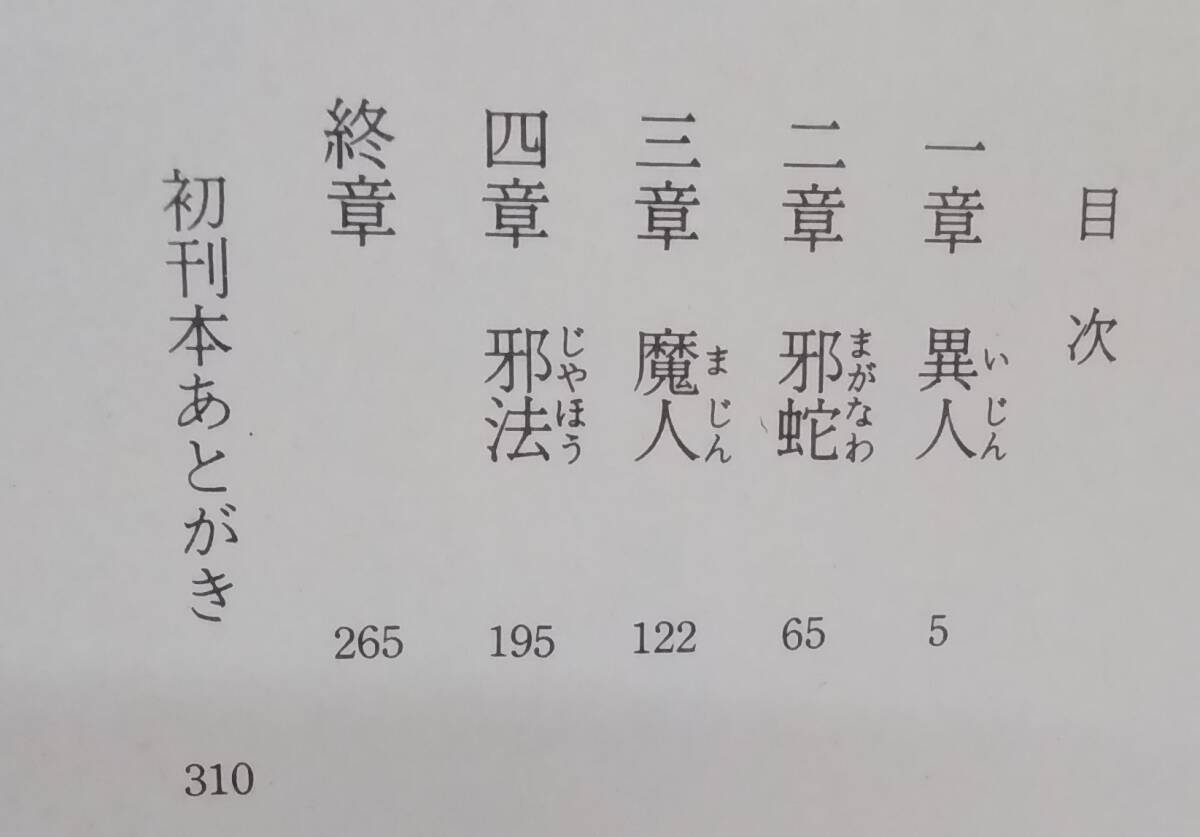 目次
一章 異人 いじん 5
二章 邪蛇 まがなわ 65
三章 魔人 まじん 122
四章 邪法 じゃほう 195
終章 265
初刊本あとがき 310